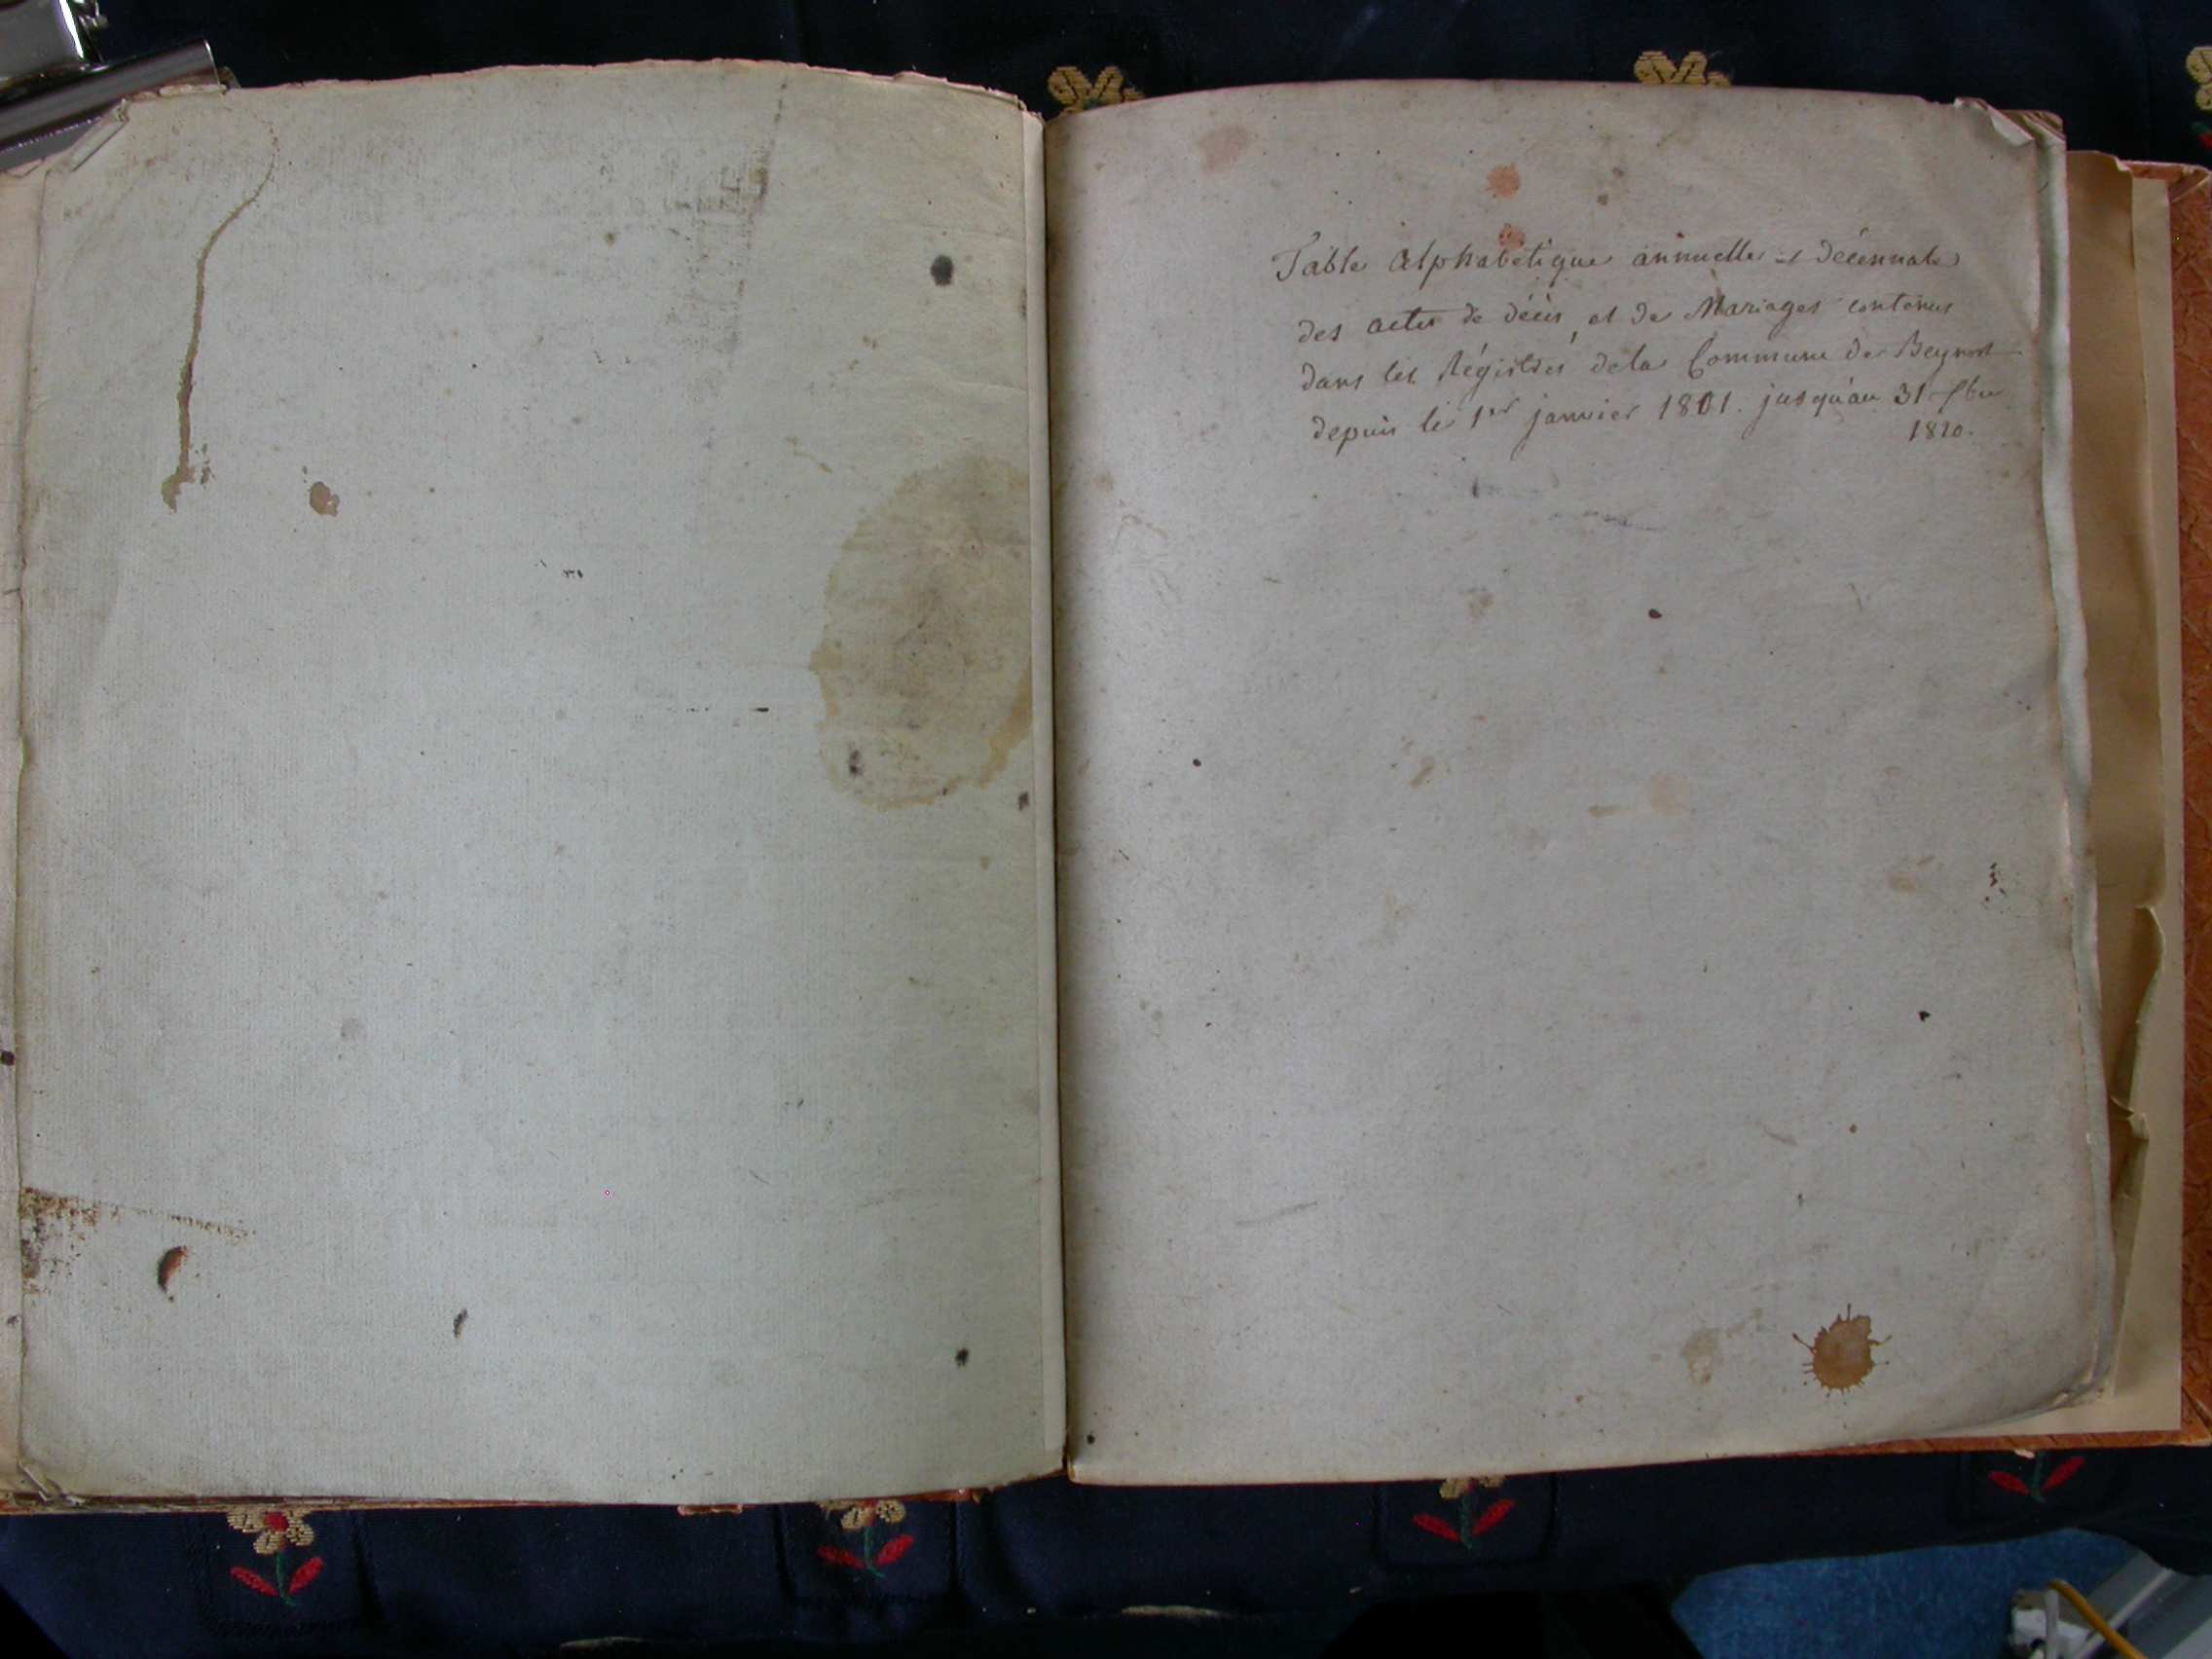 Table Alphabétique annuelle et décennale
des actes de décès, et de Mariages contenus
dans les Régistres de la Commune de Beynost
depuis le 1er janvier 1801. jusqu'au 31 Xbre
1810.